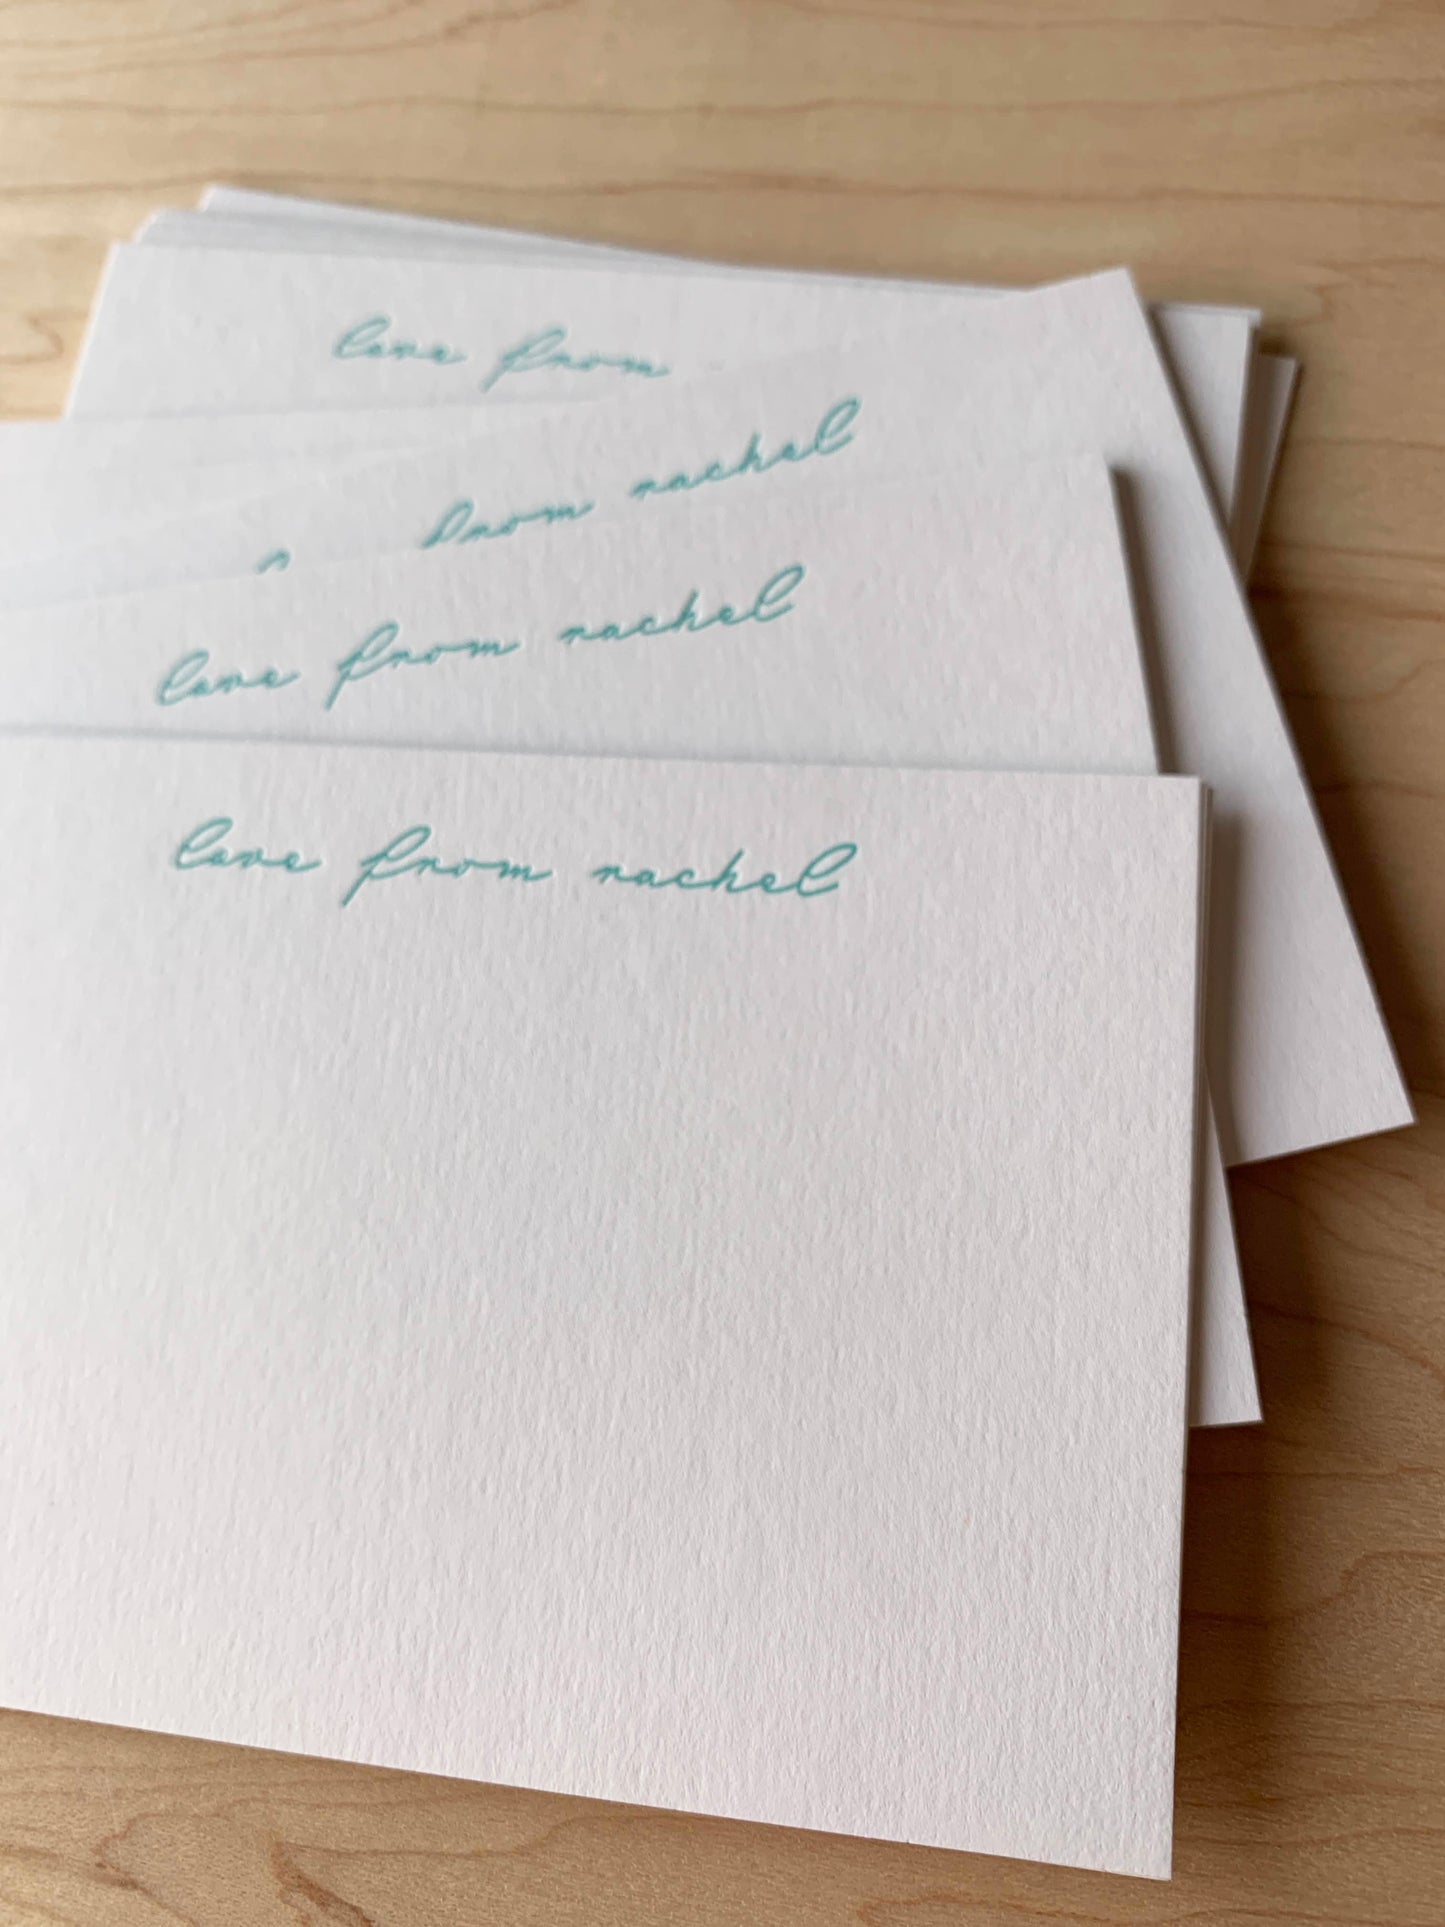 love from
from rachel
love from rachel
love from rachel